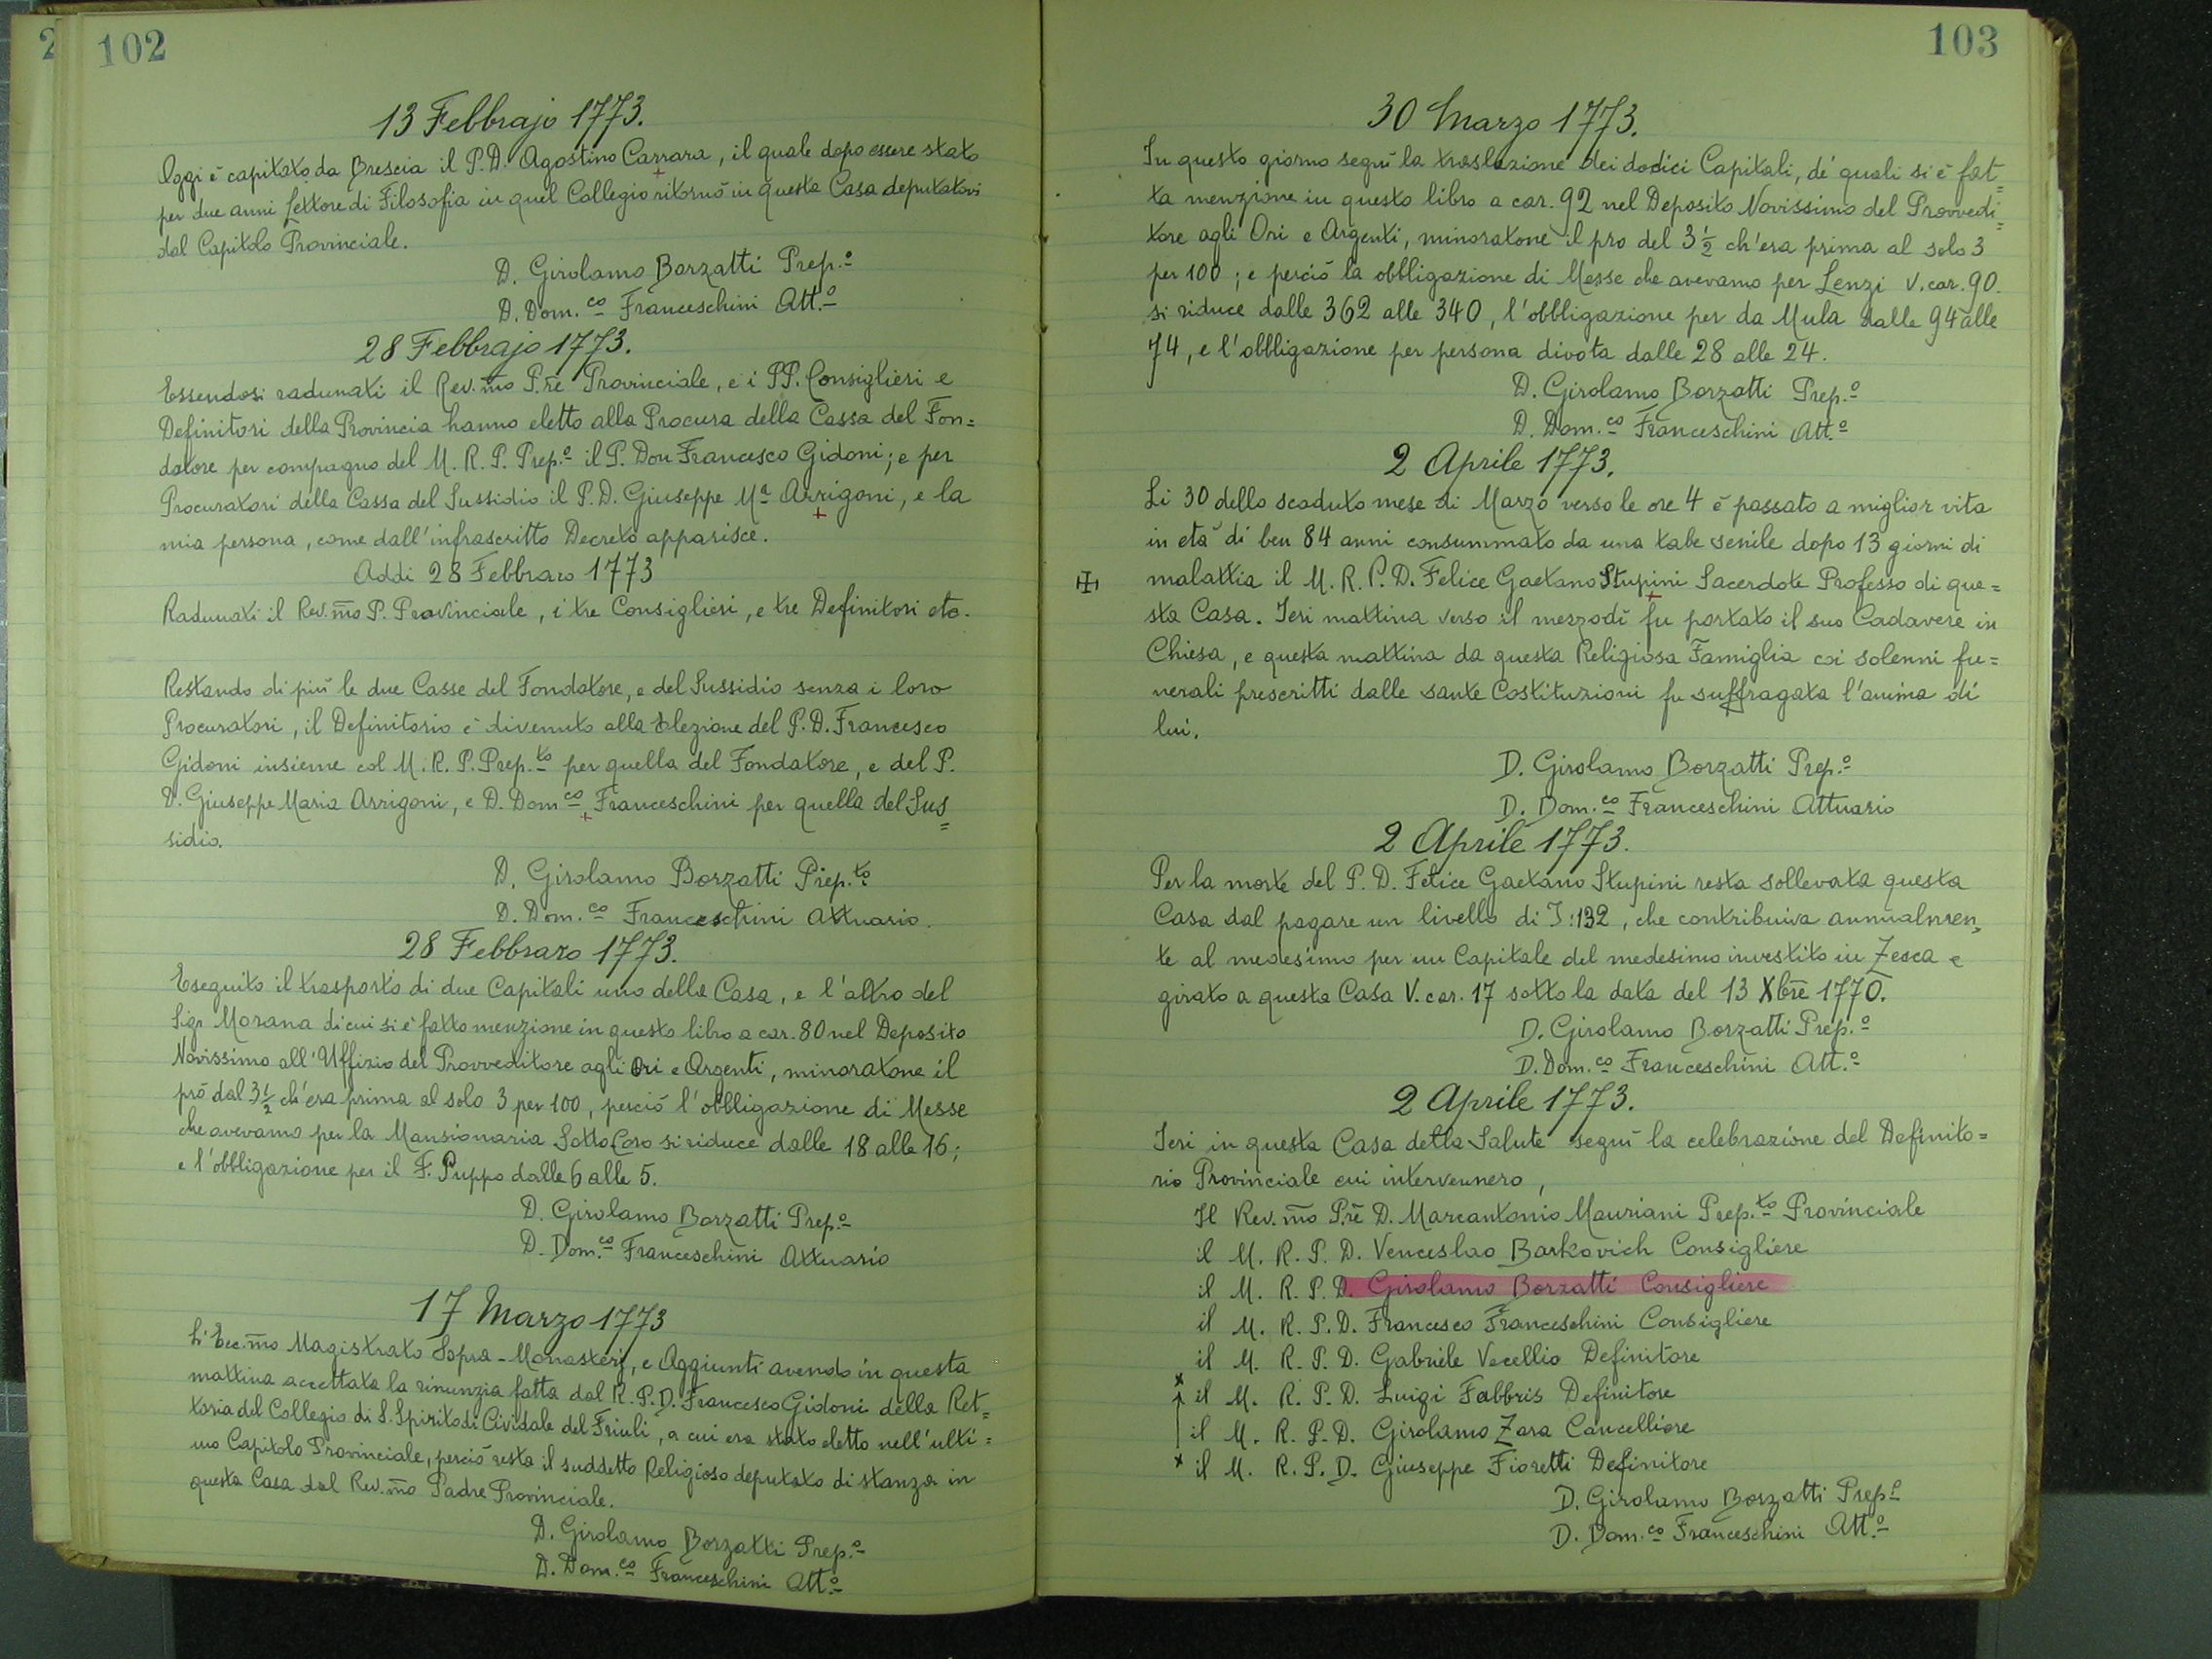 2
102
13 Febbrajo 1773.
Oggi è capitato da Brescia il P. D. Agostino Carrara, il quale dopo essere stato
per due anni Lettore di Filosofia in quel Collegio ritornò in questa Casa deputatovi
dal Capitolo Provinciale.
D. Girolamo Borzatti Prep.o
D. Dom.co Franceschini Att.o
28 Febbrajo 1773.
Essendosi radunati il Rev.mo P.re Provinciale, e i PP. Consiglieri e
Definitori della Provincia hanno eletto alla Procura della Cassa del Fon=
datore per compagno del M. R. P. Prep.o il P. Don Francesco Gidoni; e per
Procuratori della Cassa del Sussidio il P. D. Giuseppe M.a Arrigoni, e la
mia persona, come dall'infrascritto Decreto apparisce.
Addi 28 Febbraro 1773
Radunati il Rev.mo P. Provinciale, i tre Consiglieri, e tre Definitori etc.
Restando di più le due Casse del Fondatore, e del Sussidio senza i loro
Procuratori, il Definitorio è divenuto alla Elezione del P. D. Francesco
Gidoni insieme col M. R. P. Prep.to per quella del Fondatore, e del P.
D. Giuseppe Maria Arrigoni, e D. Dom.co Franceschini per quella del Sus=
sidio.
D. Girolamo Borzatti Prep.to
D. Dom.co Franceschini Attuario.
28 Febbraro 1773.
Eseguito il trasporto di due Capitali uno della Casa, e l'altro del
Sigr Morana di cui si è fatto menzione in questo libro a car. 80 nel Deposito
Novissimo all'Uffizio del Provveditore agli Ori e Argenti, minoratone il
prò dal 3 1/2 ch'era prima al solo 3 per 100, perciò l'obbligazione di Messe
che avevamo per la Mansionaria Sotto Coro si riduce dalle 18 alle 16;
e l'obbligazione per il F. Puppo dalle 6 alle 5.
D. Girolamo Borzatti Prep.o
D. Dom.co Franceschini Attuario
17 Marzo 1773
L'Ecc.mo Magistrato Sopra-Monasterj, e Aggiunti avendo in questa
mattina accettata la rinunzia fatta dal R. P. D. Francesco Gidoni della Ret=
toria del Collegio di S. Spirito di Cividale del Friuli, a cui era stato eletto nell'ulti=
mo Capitolo Provinciale, perciò resta il suddetto Religioso deputato di stanza in
questa Casa dal Rev.mo Padre Provinciale.
D. Girolamo Borzatti Prep.o
D. Dom.co Franceschini Att.o
103
30 Marzo 1773.
In questo giorno seguì la traslazione dei dodici Capitali, de' quali si è fat=
ta menzione in questo libro a car. 92 nel Deposito Novissimo del Provvedi=
tore agli Ori e Argenti, minoratone il pro del 3 1/2 ch'era prima al solo 3
per 100; e perciò la obbligazione di Messe che avevamo per Lenzi V. car. 90.
si riduce dalle 362 alle 340, l'obbligazione per da Mula dalle 94 alle
74, e l'obbligazione per persona divota dalle 28 alle 24.
D. Girolamo Borzatti Prep.o
D. Dom.co Franceschini Att.o
2 Aprile 1773.
Li 30 dello scaduto mese di Marzo verso le ore 4 è passato a miglior vita
in età di ben 84 anni consummato da una tabe senile dopo 13 giorni di
malattia il M. R. P. D. Felice Gaetano Stupini Sacerdote Professo di que=
sta Casa. Ieri mattina verso il mezzodì fu portato il suo Cadavere in
Chiesa, e questa mattina da questa Religiosa Famiglia coi solenni fu=
nerali prescritti dalle sante Costituzioni fu suffragata l'anima di
lui.
D. Girolamo Borzatti Prep.o
D. Dom.co Franceschini Attuario
2 Aprile 1773.
Per la morte del P. D. Felice Gaetano Stupini resta sollevata questa
Casa dal pagare un livello di :132, che contribuiva annualmen=
te al medesimo per un Capitale del medesimo investito in Zecca e
girato a questa Casa V. car. 17 sotto la data del 13 Xbre 1770.
D. Girolamo Borzatti Prep.o
D. Dom.co Franceschini Att.o
2 Aprile 1773.
Ieri in questa Casa della Salute seguì la celebrazione del Definito=
rio Provinciale cui intervennero,
Il Rev.mo P.re D. Marcantonio Mauriani Prep.to Provinciale
il M. R. P. D. Venceslao Barkovich Consigliere
il M. R. P. D. Girolamo Borzatti Consigliere
il M. R. P. D. Francesco Franceschini Consigliere
il M. R. P. D. Gabriele Vecellio Definitore
il M. R. P. D. Luigi Fabbris Definitore
il M. R. P. D. Girolamo Zara Cancelliere
il M. R. P. D. Giuseppe Fioretti Definitore
D. Girolamo Borzatti Prep.o
D. Dom.co Franceschini Att.o